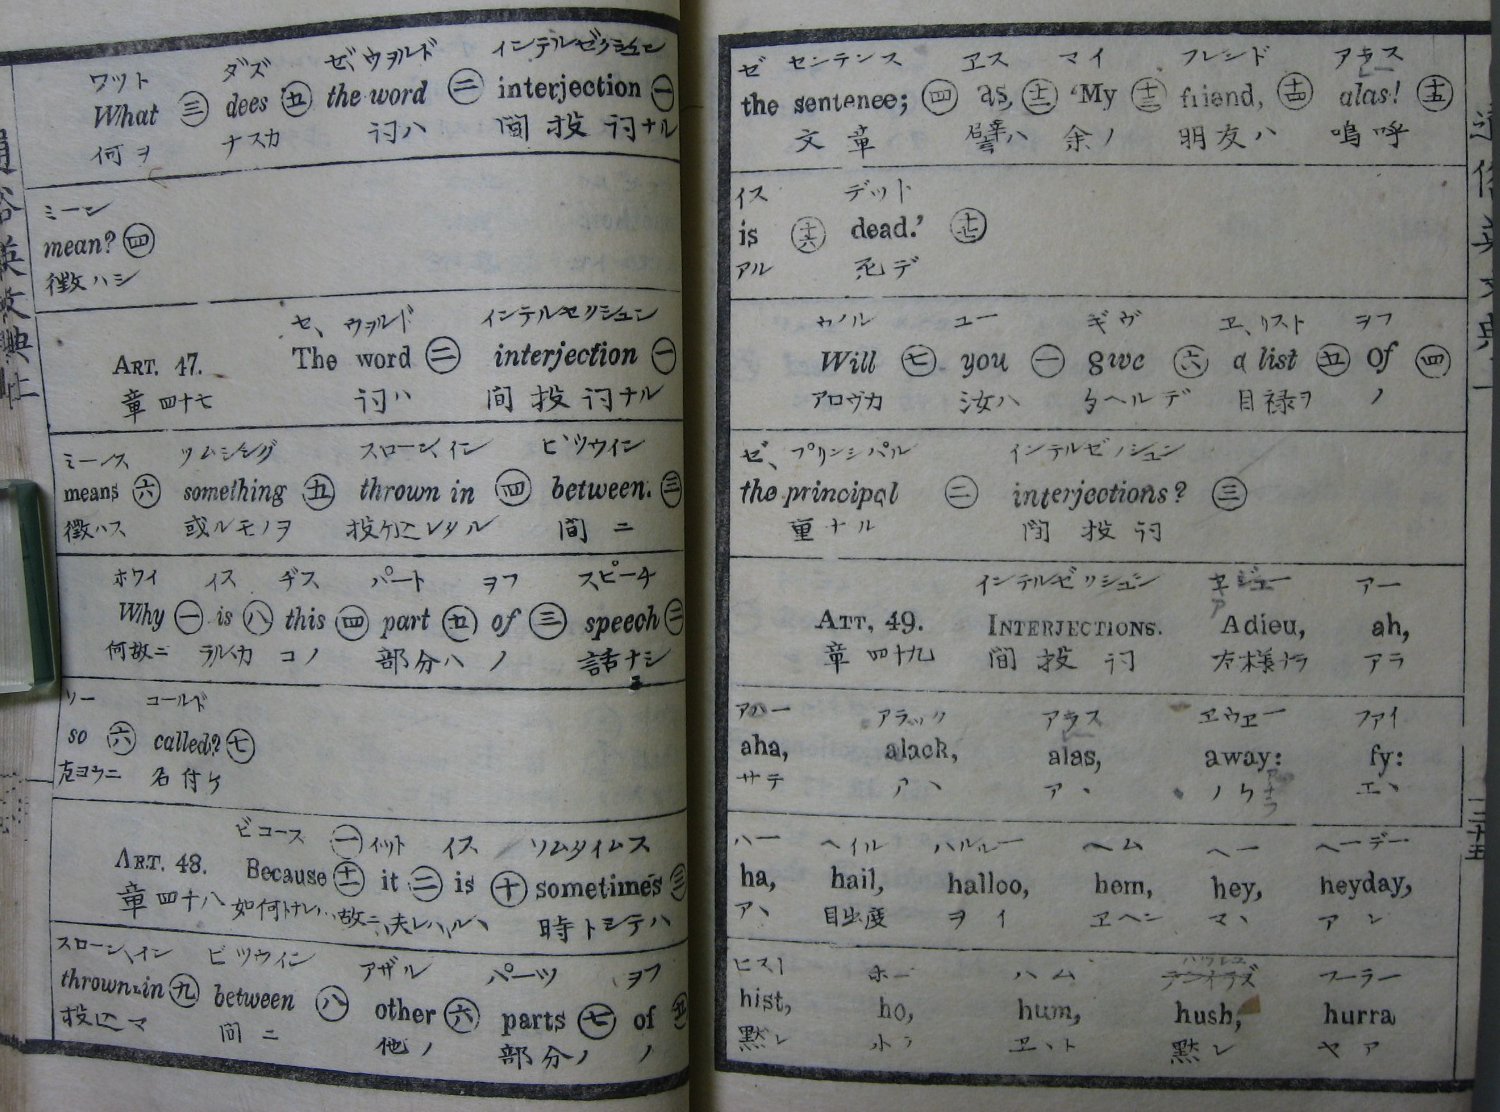 ワツト ダズ ゼ、ウヲルド インテルゼクシユン
What ㊂ dees ㊄ the word ㊁ interjection ㊀
何ヲ ナスカ 詞ハ 間投詞ナル
ミーン
mean? ㊃
徴ハシ
セ、ウヲルド インテルセクシユン
ART. 47. The word ㊁ interjection ㊀
章四十七 詞ハ 間投詞ナル
ミーンス ソムシング スローン、イン ビツウイン
means ㊅ something ㊄ thrown in ㊃ between. ㊂
徴ハス 或ルモノヲ 投ケ込レタル 間ニ
ホワイ イス ヂス パート ヲフ スピーチ
Why ㊀ is ㊇ this ㊃ part ㊄ of ㊂ speech ㊁
何故ニ ラルヽカ コノ 部分ハ ノ 話ナシ
ソー コールド
so ㊅ called? ㊆
左ヨウニ 名付ケ
ビコース ㊀ イツト イス ソムタイムス
ART. 48. Because it ㊁ is ㊉ sometimes ㊂
章四十八 如何トナレハ 故ニ 夫レハ 時トシテハ
スローン、イン ビツウイン アザル パーツ ヲフ
thrown in ㊈ between ㊇ other ㊅ parts ㊆ of ㊄
投込マ 間ニ 他ノ 部分ノ ノ
ゼ センテンス ヱス マイ フレンド アラス
the sentence; ㊃ as, 十二 'My 十三 friend, 十四 alas! 十五
文章 譬ハ 余ノ 朋友ハ 嗚呼
イス デツド
is 十六 dead.' 十七
アル 死デ
ウイル ユー ギヴ ヱ、リスト ヲフ
Will ㊆ you ㊀ give ㊅ a list ㊄ of ㊃
アロヴカ 汝ハ タヘルデ 目禄ヲ ノ
ゼ、プリンシパル インテルゼクシユン
the principal ㊁ interjections? ㊂
重ナル 間投詞
インテルゼクシユン アー
ART. 49. INTERJECTIONS. Adieu, ah,
章四十九 間投詞 左様ナラ アラ
アハー アラック アラス ヱウヱー フアイ
aha, alack, alas, away: fy:
サテ アヽ アヽ ノケ エヽ
ハー ヘイル ハルルー ヘム ヘー ヘーデー
ha, hail, halloo, hem, hey, heyday,
アヽ 目出度 ヲイ ヱヘン マヽ アン
ヒスト ホー ハム フーラー
hist, ho, hum, hush, hurra
黙レ ヱヽト 黙レ ヤア
三十五